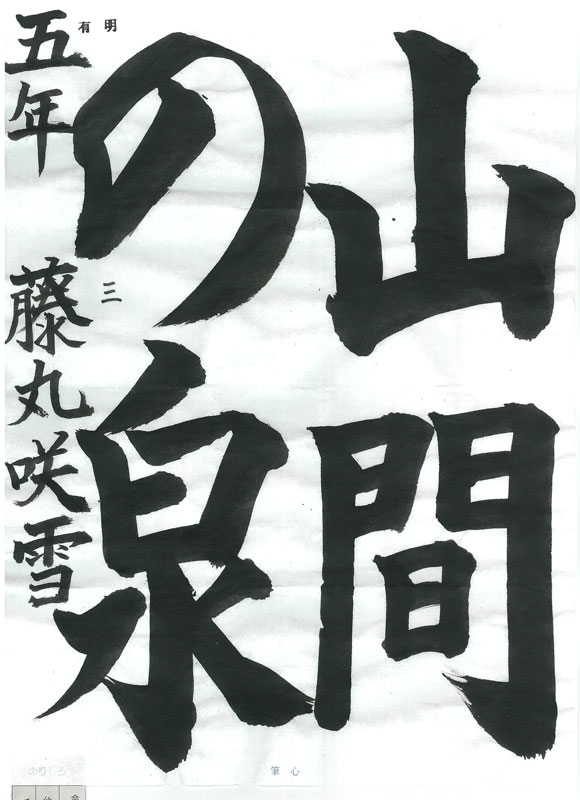 山間
の泉
有明
三
五年 藤丸咲雪
のりしろ
筆心